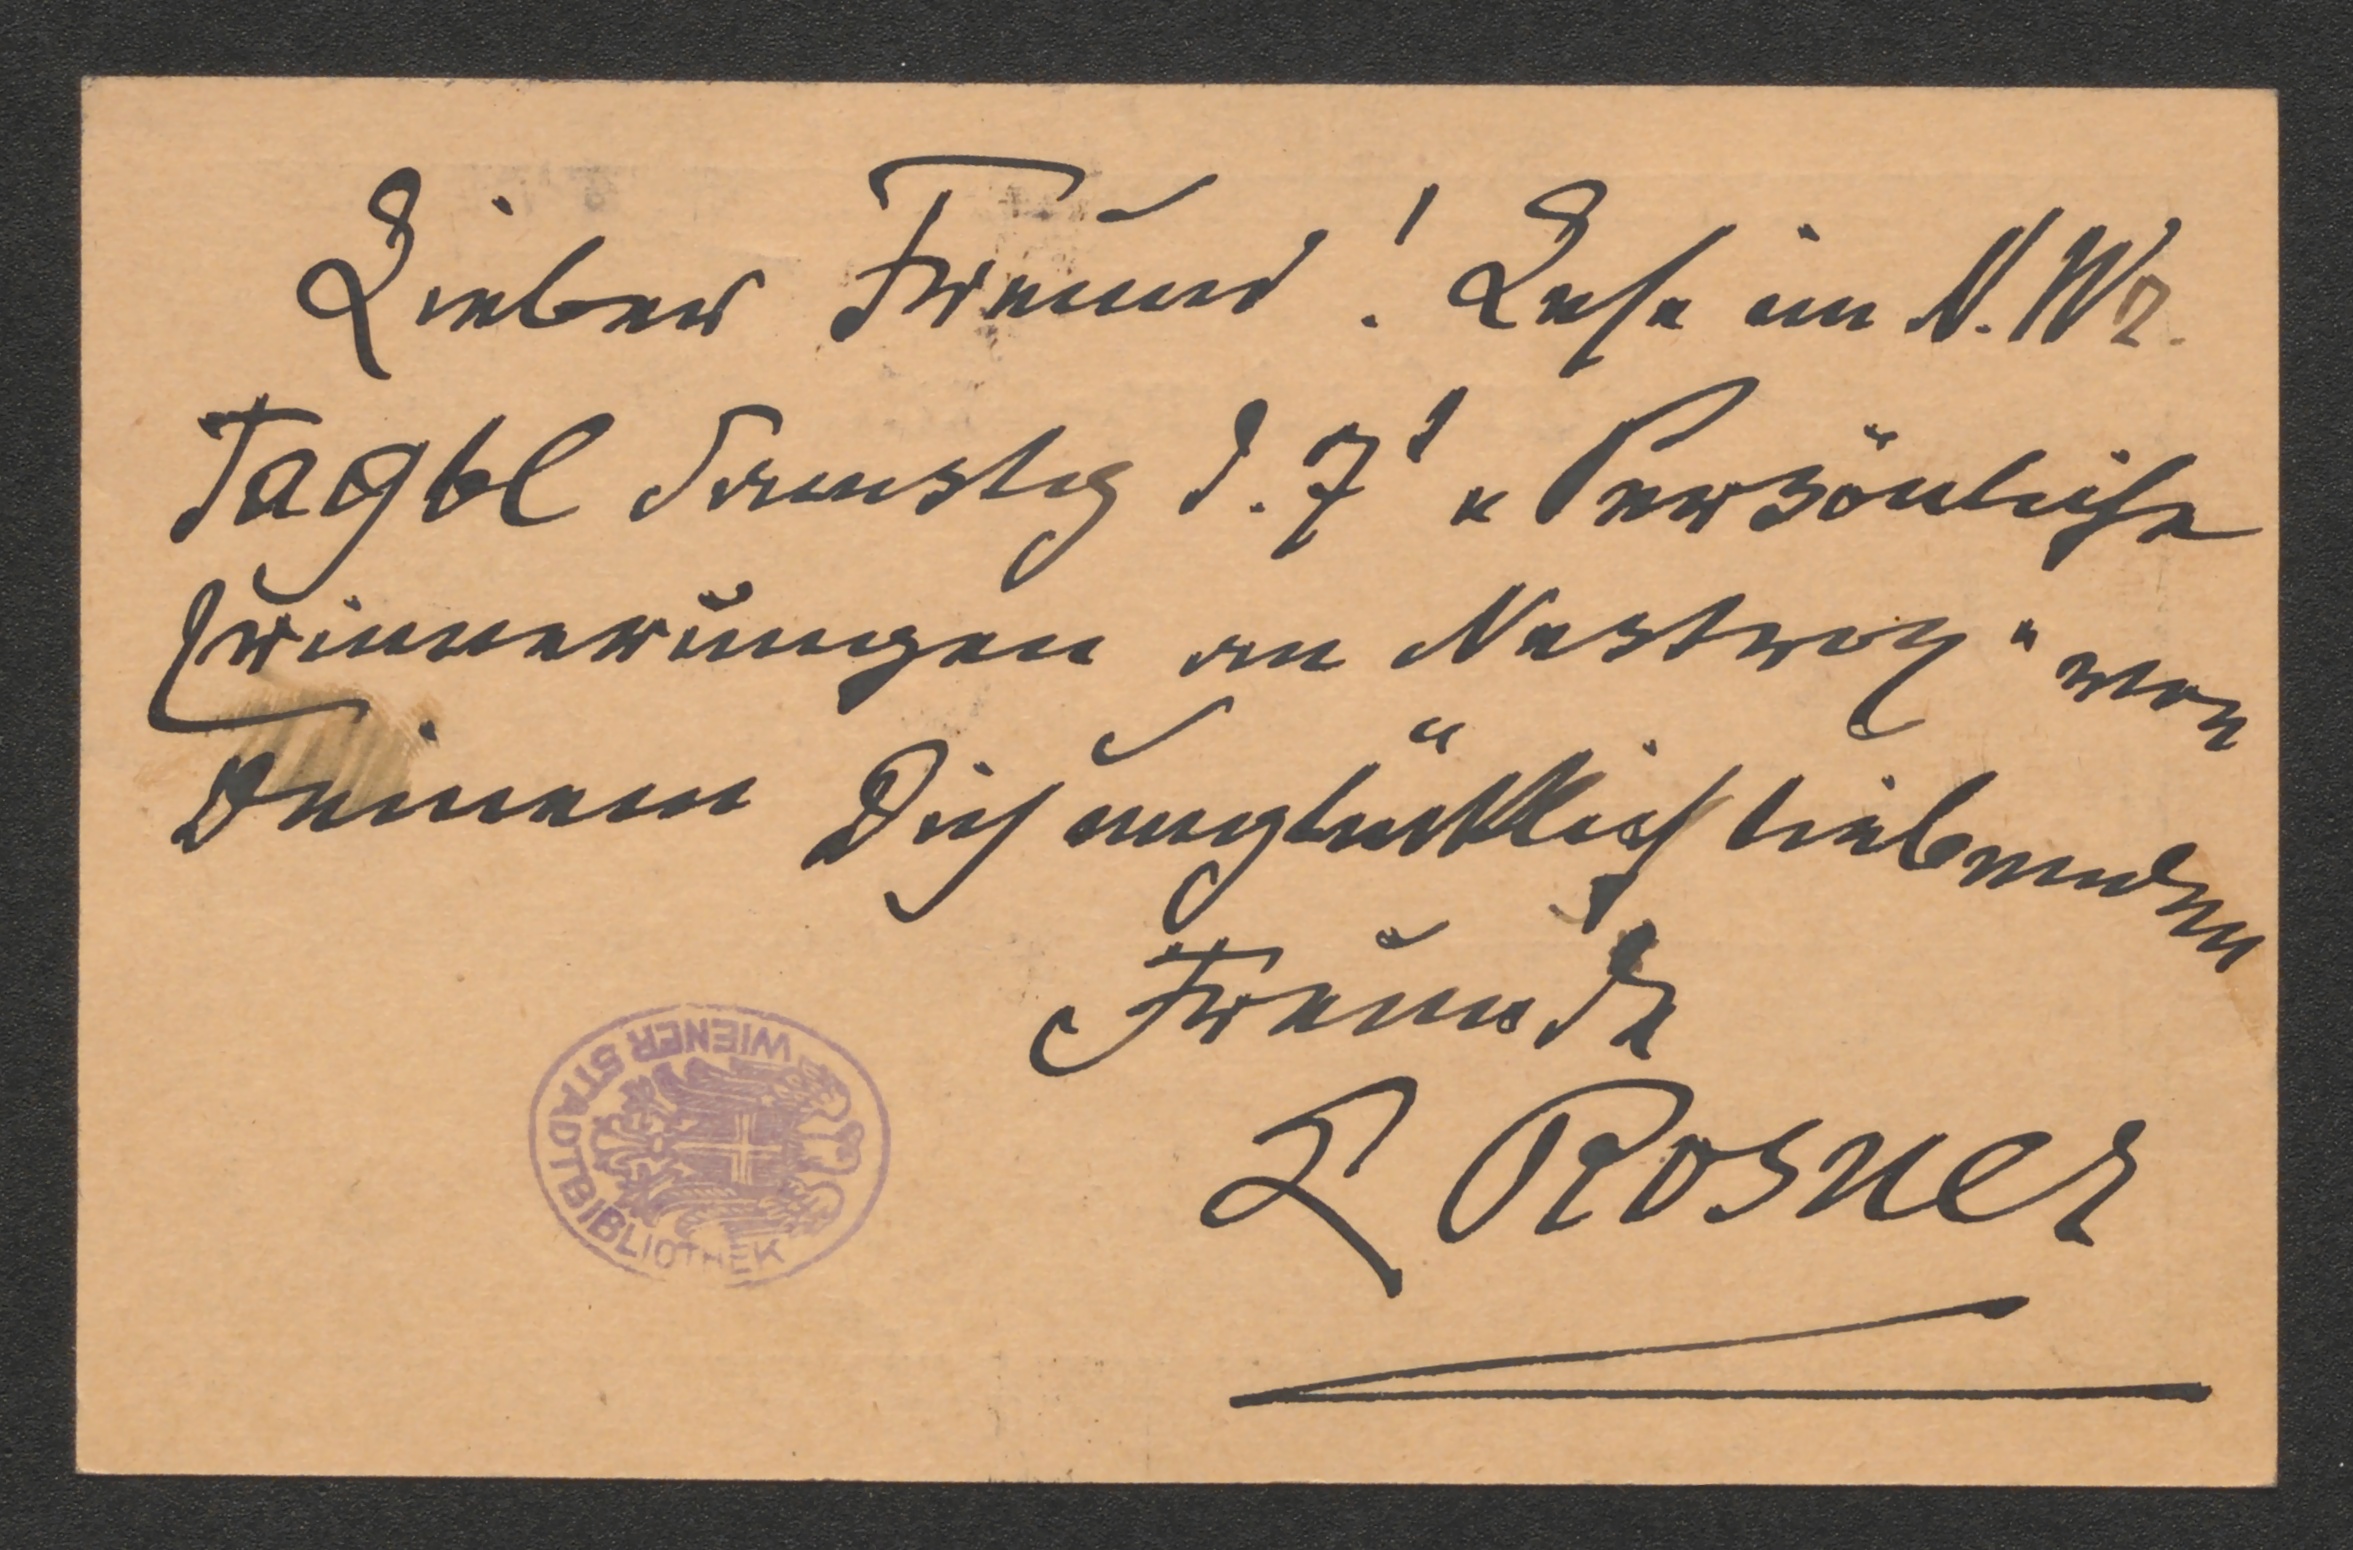 Lieber Freund! Lese im N. Wr.
Tagbl Samstag d. 7t „Persönliche
Erinnerungen an Nestroy" von
Deinem Dich unglücklich liebenden
Freunde
L Rosner
WIENER STADTBIBLIOTHEK